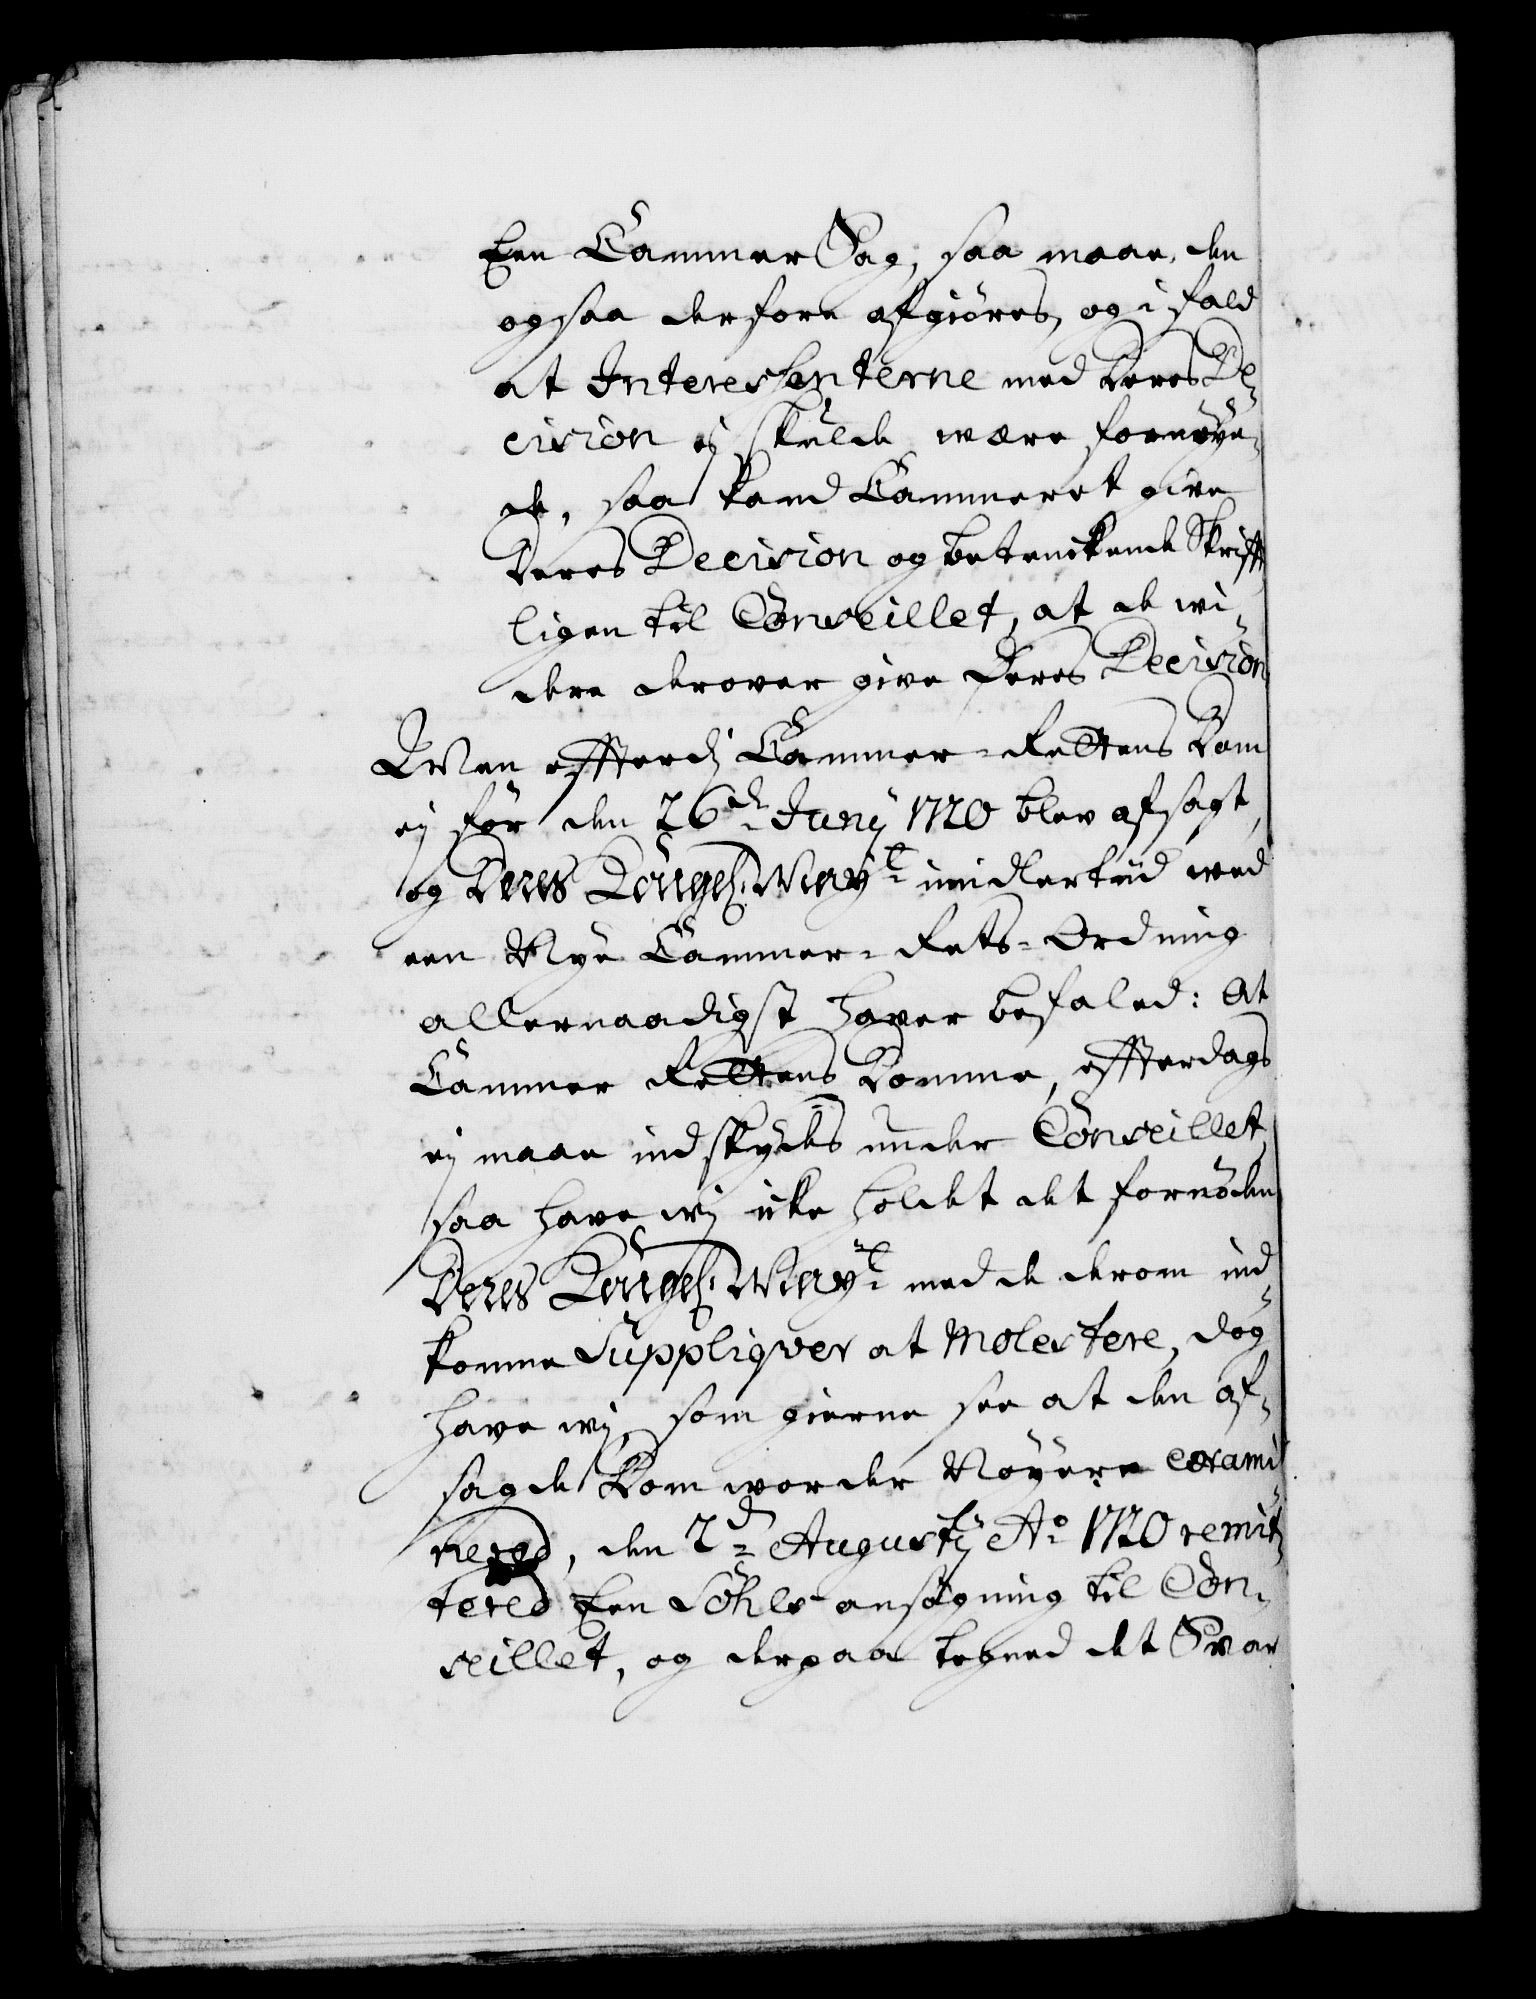 Een Cammer Sag, saa maae den
ogsaa derfore afgiöres, og i fald
at Interessenterne med Deres De-
cision ej skulde være fornöye-
de, saa kand Cammeret give
Deres Decision og betenkende Skrifft
ligen til Conseillet, at de vi-
dere derover give Deres Decision
Men efterdj Cammer-Rettens Dom
ej för den 26de Junij 1720 blev afsagt,
og Deres Kongel. Mayt imidlertiid med
een Nye Cammer-Rets-Ordning
allernaadigst haver befaled: At
Cammer Rettens Domme, effterdags
ej maae indskydes under Conseillet,
saa have wj icke holdet det fornöden
Deres Kongel. Mayt med de derom ind-
komne Suppliqver at molestere, dog
have wj, som gierne see at den af-
sagde Dom vorder Nöyere exami-
nered, den 2d Augustij Ao 1720 remit-
tered Een Söhls ansögning til Con-
seillet, og derpaa bekommed det Svar